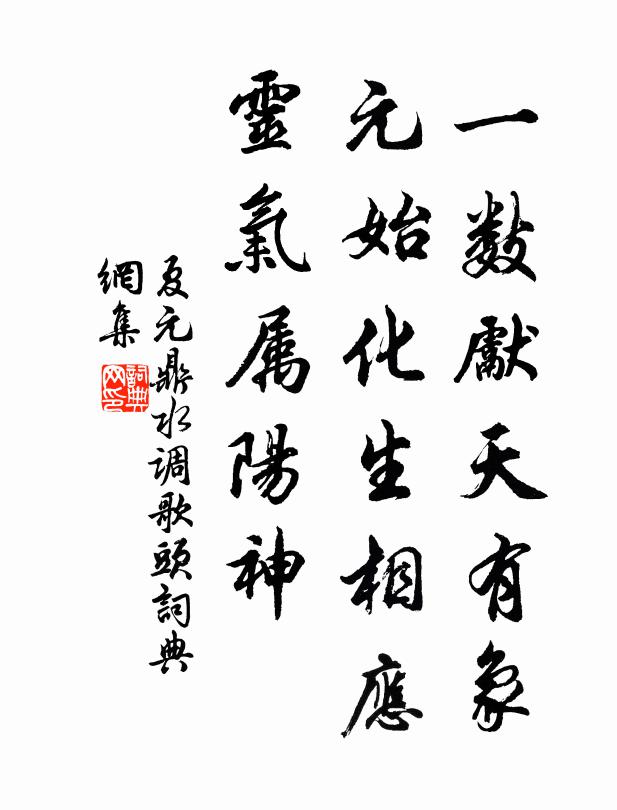 一数獻天有象
元始化生相應
靈氣属陽神
夏元鼎水调歌頭詞典
網集
詞典
网印